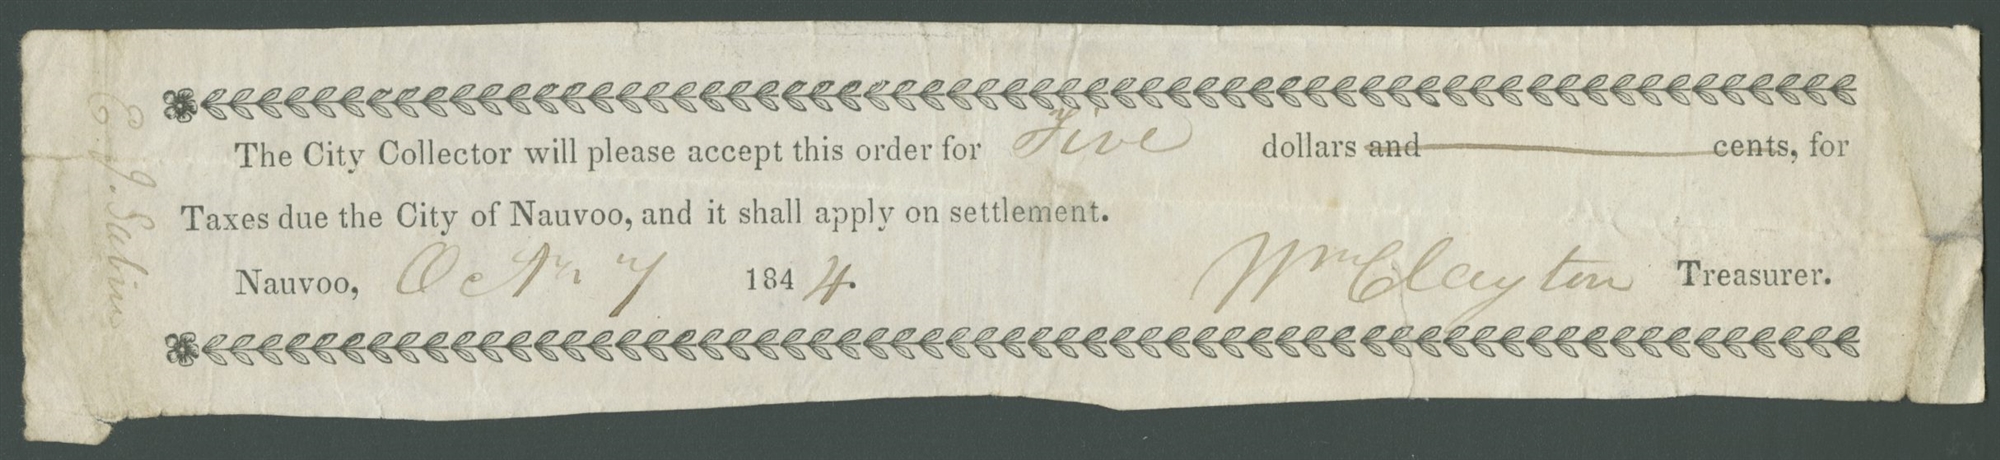 The City Collector will please accept this order for Five dollars and cents, for
Taxes due the City of Nauvoo, and it shall apply on settlement.
Nauvoo, Octr 7 1844. Wm Clayton Treasurer.
E. J. Sabin